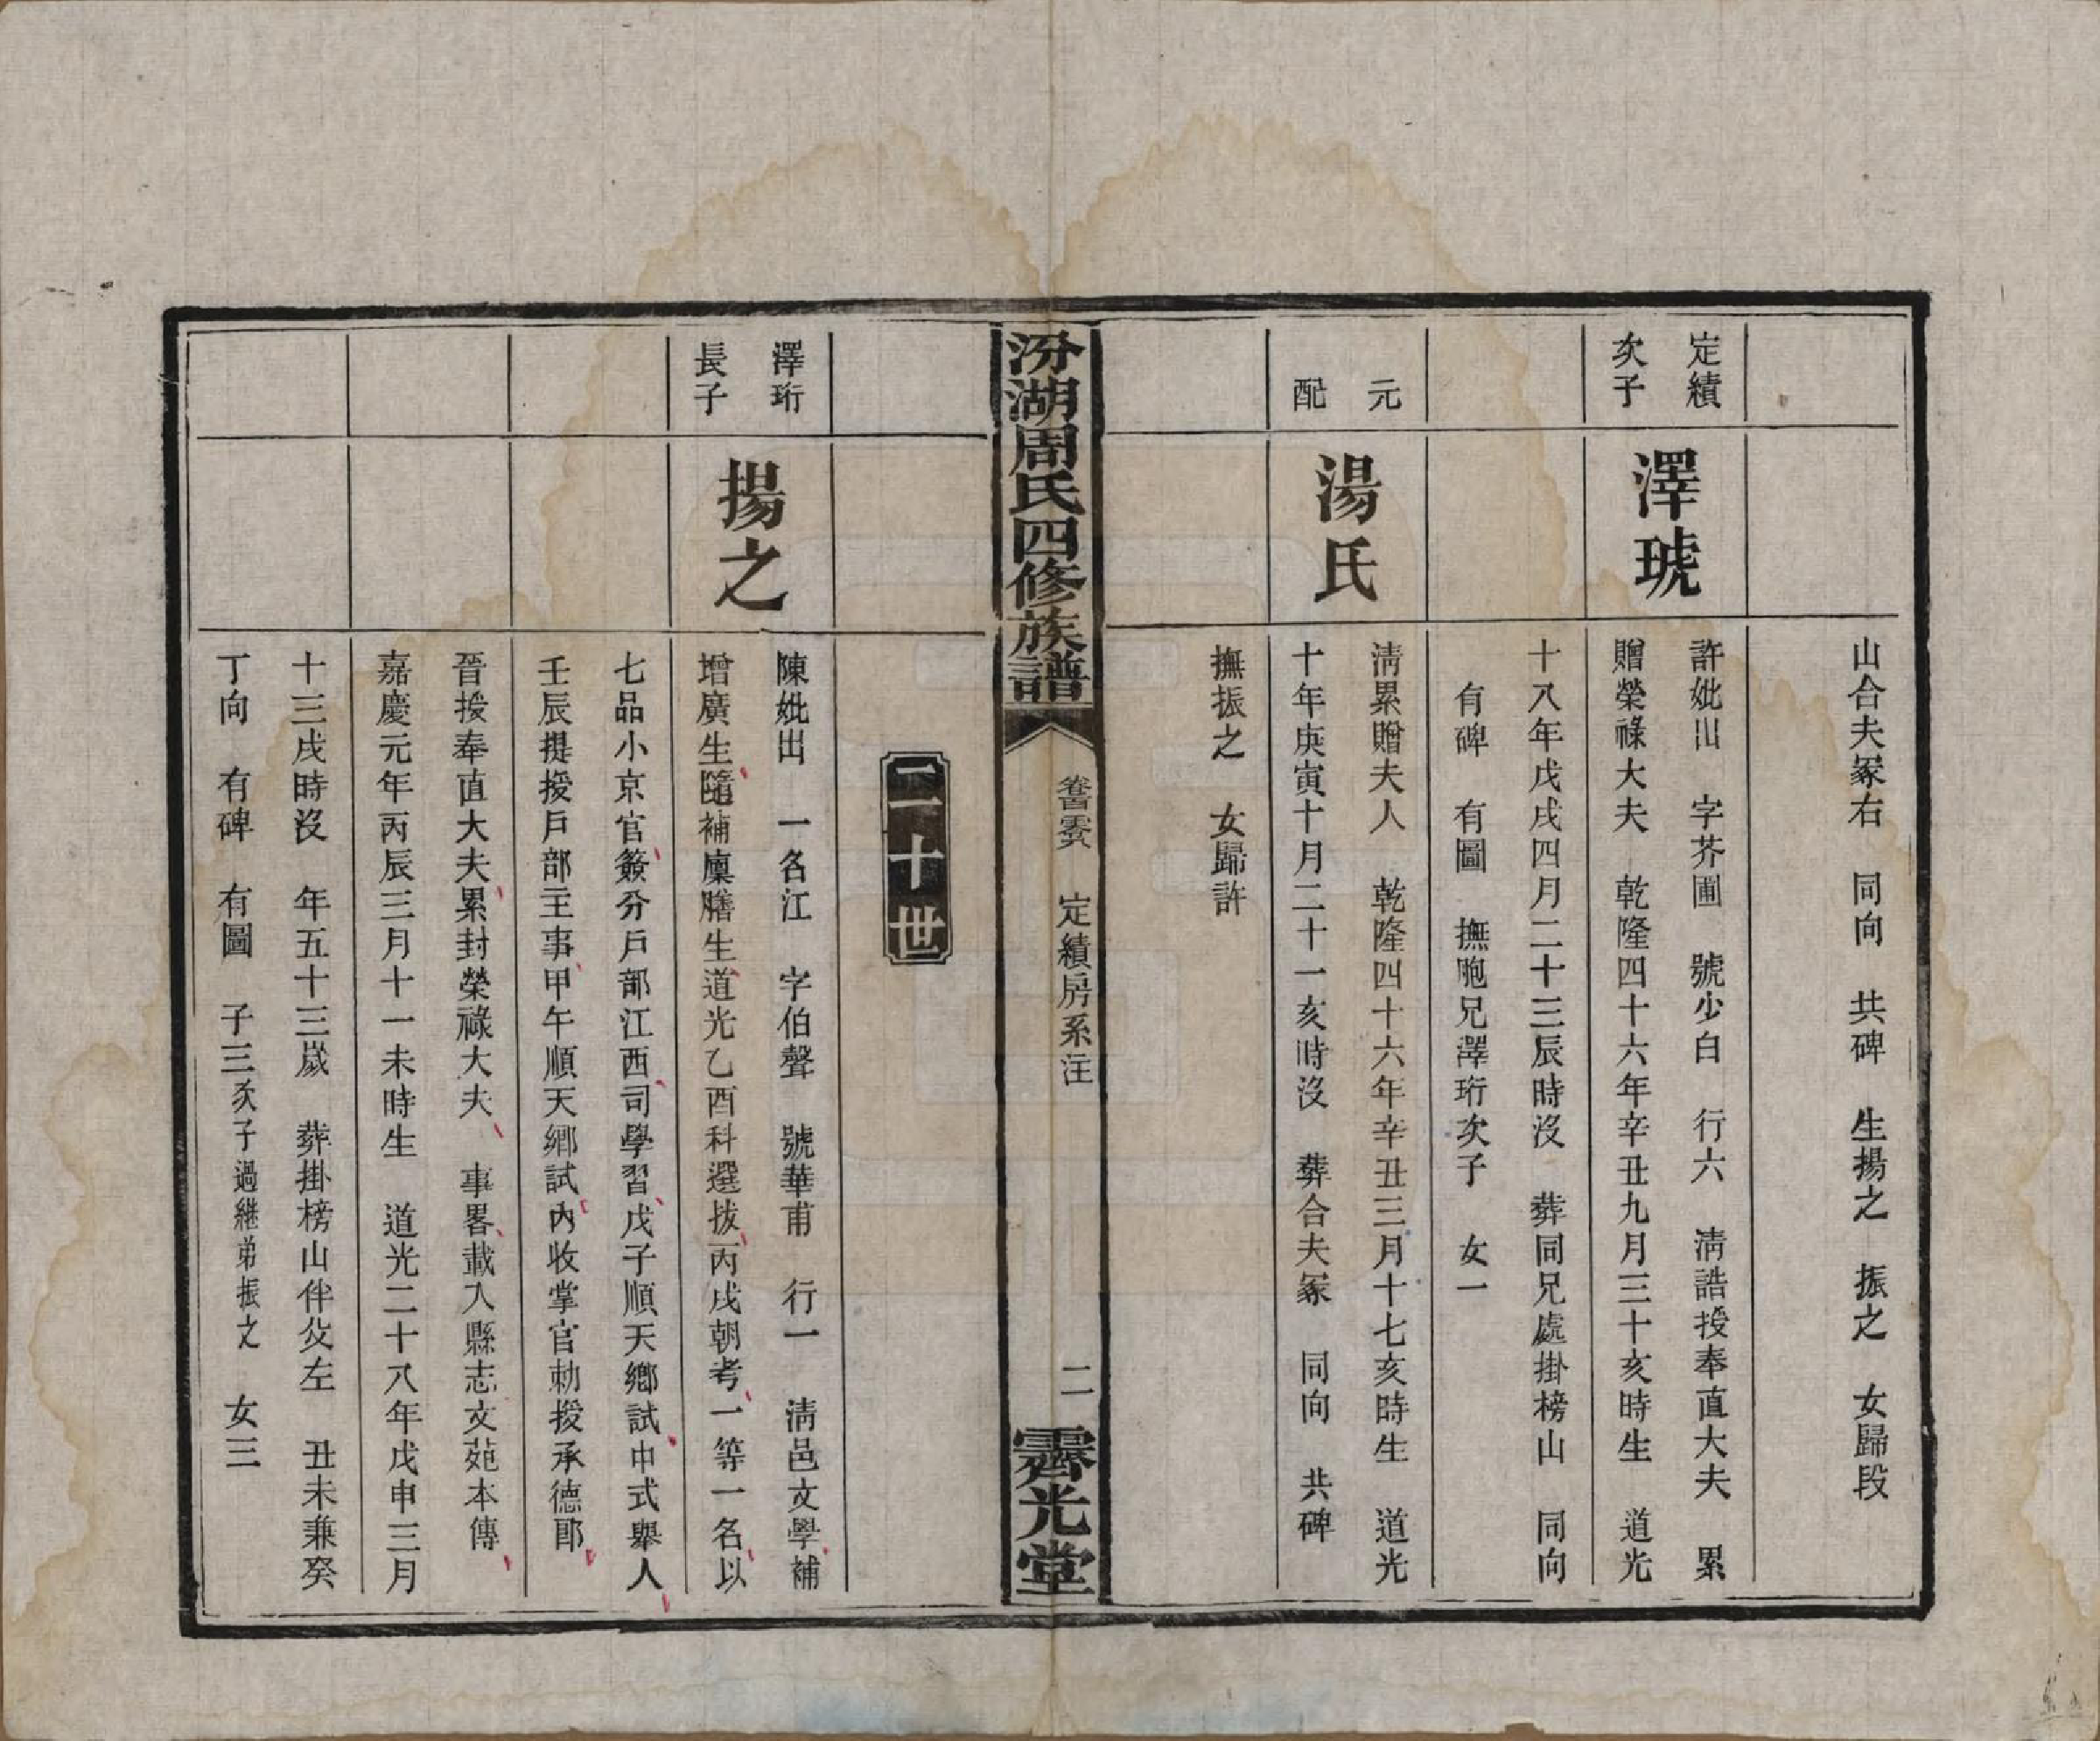 山合夫冢右　同向　共碑　生揚之　振之　女歸段
定績
次子
澤琥
許妣出　字芥圃　號少白　行六　淸誥授奉直大夫　累
贈榮祿大夫　乾隆四十六年辛丑九月三十亥時生　道光
十八年戊戌四月二十三辰時沒　葬同兄處掛榜山　同向
有碑　有圖　撫胞兄澤珩次子　女一
元
配
湯氏
淸累贈夫人　乾隆四十六年辛丑三月十七亥時生　道光
十年庚寅十月二十一亥時沒　葬合夫冢　同向　共碑
撫振之　女歸許
汾湖周氏四修族譜
定績房系注
二
霽光堂
二十世
澤珩
長子
揚之
陳妣出　一名江　字伯聲　號華甫　行一　淸邑文學補
增廣生隨補廩膳生道光乙酉科選拔丙戌朝考一等一名以
七品小京官簽分戶部江西司學習戊子順天鄉試中式舉人
壬辰提授戶部主事甲午順天鄉試內收掌官勅授承德郎
晉授奉直大夫累封榮祿大夫　事畧載入縣志文苑本傳
嘉慶元年丙辰三月十一未時生　道光二十八年戊申三月
十三戌時沒　年五十三歲　葬掛榜山伴父左　丑未兼癸
丁向　有碑　有圖　子三次子過繼弟振之　女三